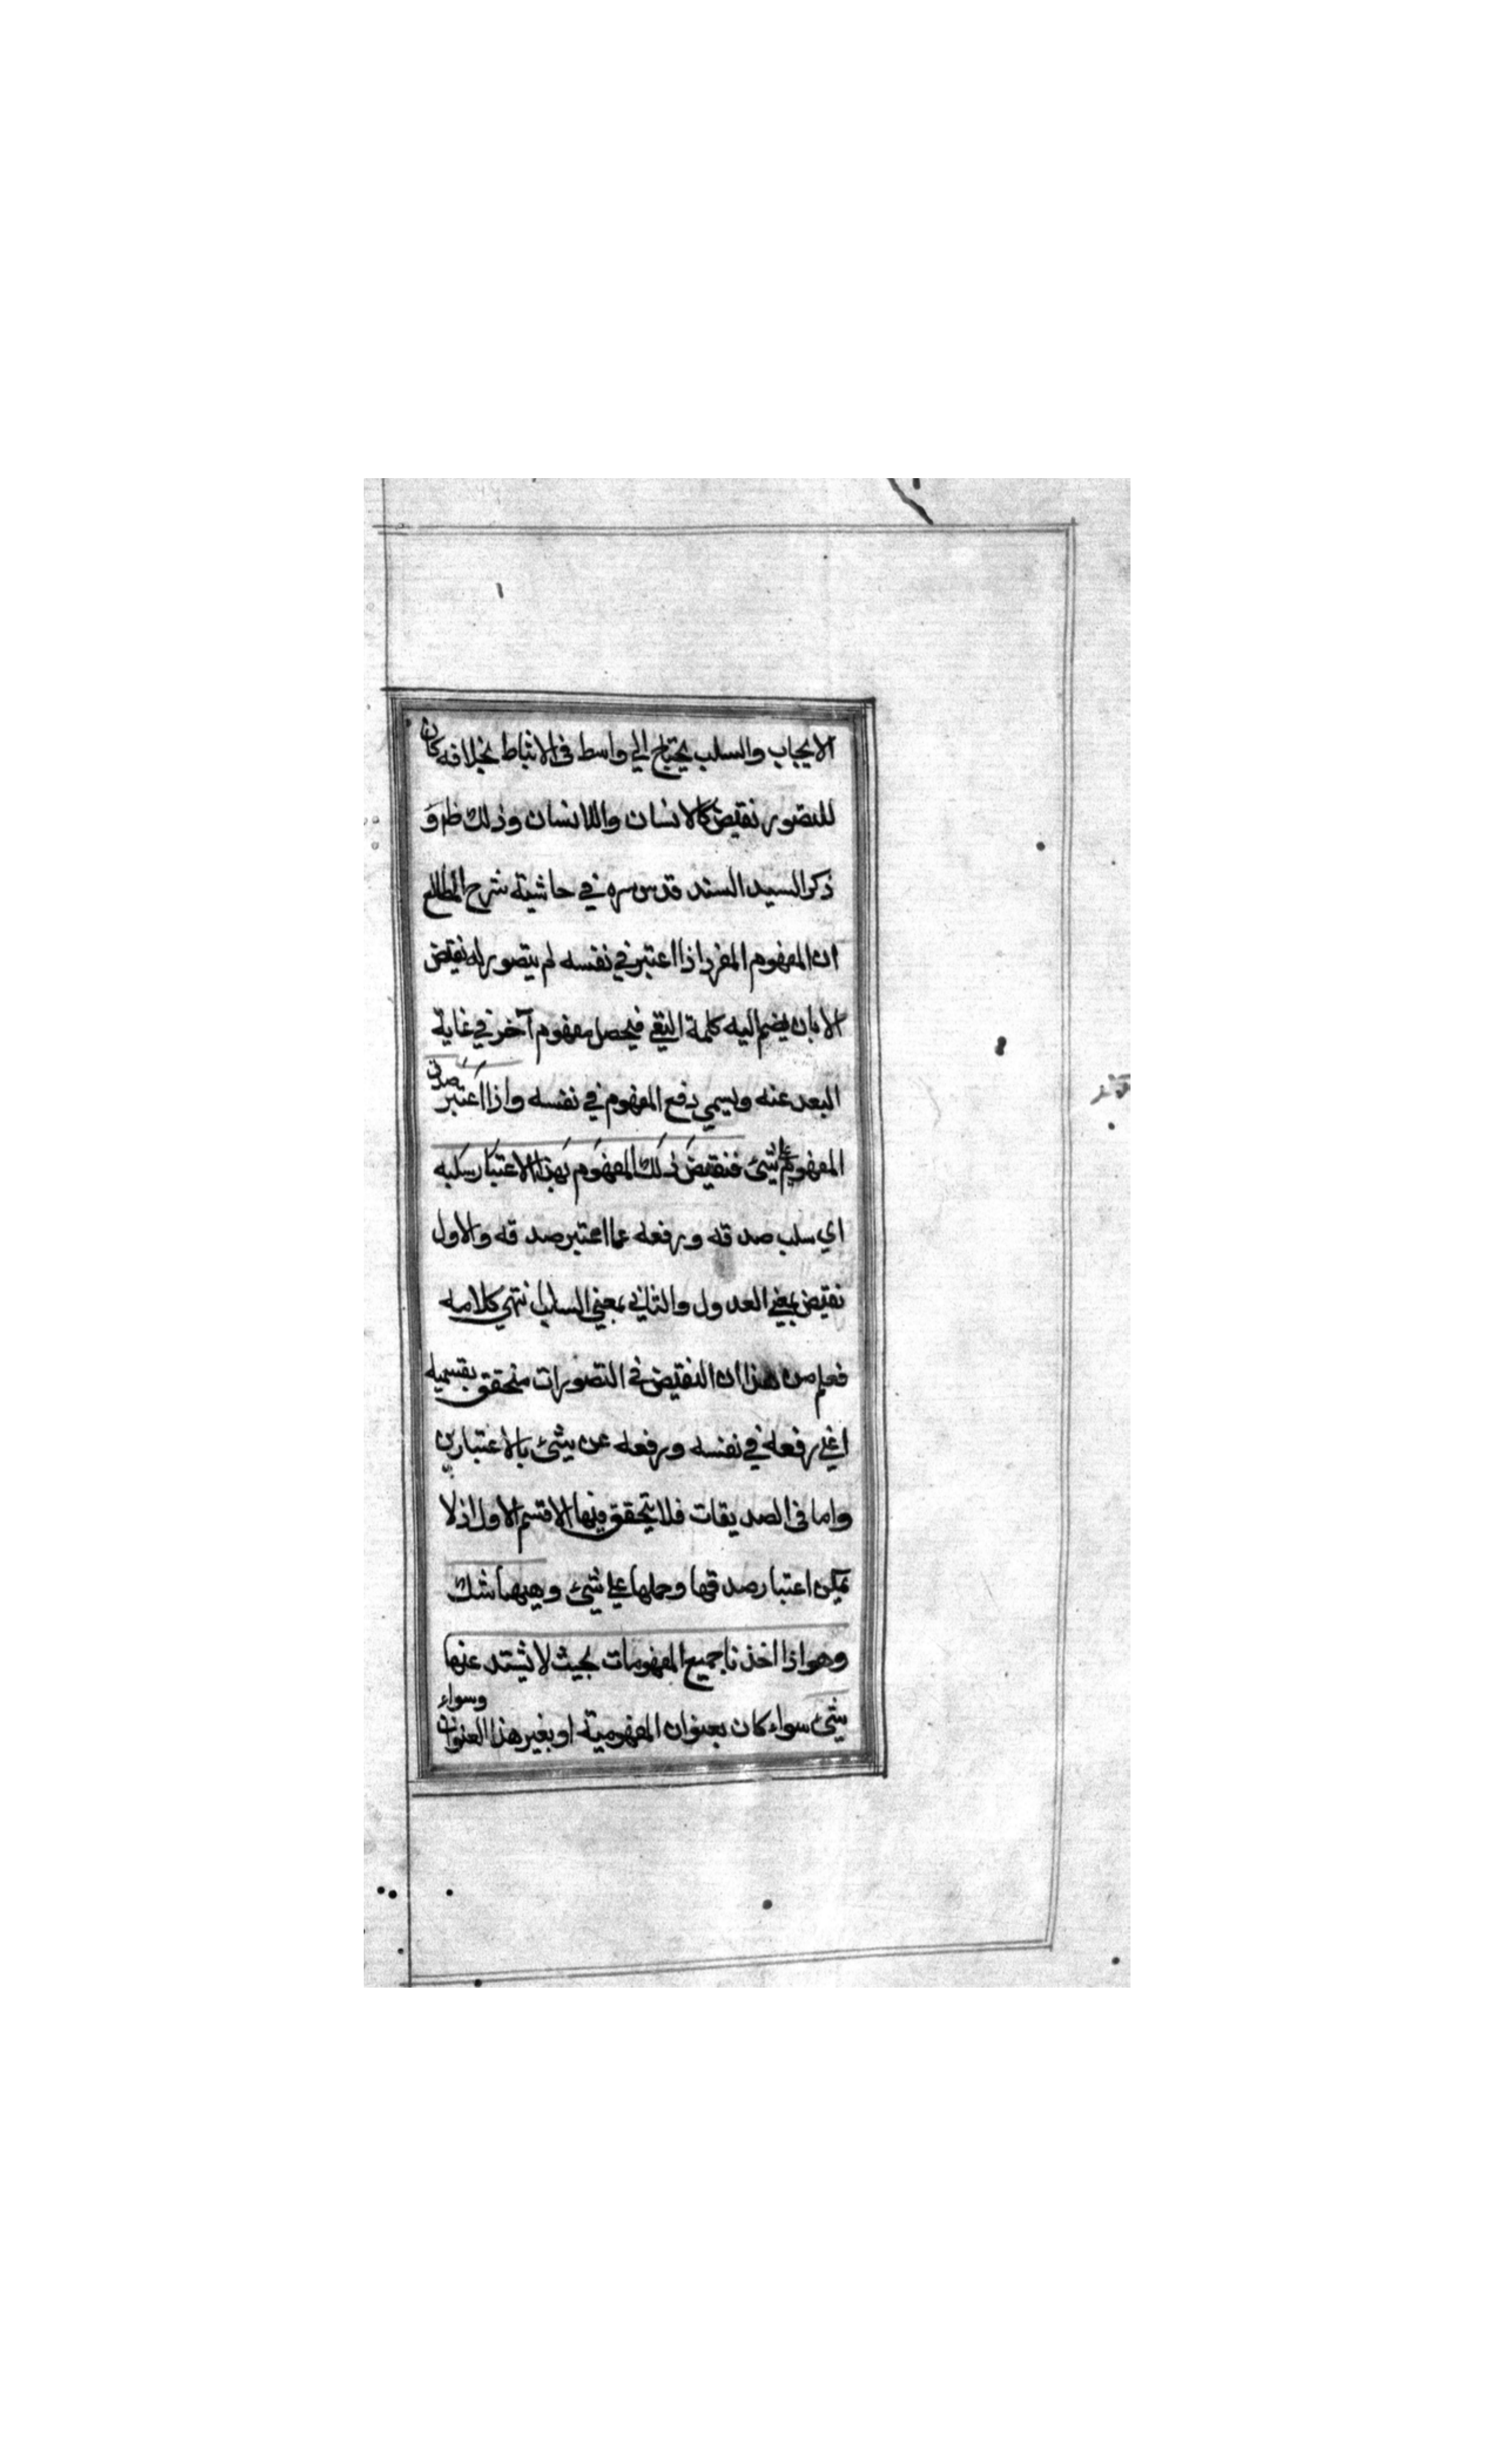 الايجاب والسلب يحتاج الي واسط في الانتباط بخلافه كان
للتصور نقيض كالانسان واللاانسان وذلك ظ م و
ذكر السيد السند قدس سره في حاشية شرح المطالع
ان المفهوم المفرد اذا اعتبر في نفسه لم يتصور له نقيض
الا بان يضم اليه كلمة النفي فيحصل مفهوم آخر في غاية
البعد عنه ويسمي دفع المفهوم في نفسه واذا اعتبر صدق
المفهوم علي شئ فنقيض ذلك المفهوم بهذا الاعتبار سلبه
اي سلب صدقه ورفعه عما اعتبر صدقه والاول
نقيض بمعني العدول والثاني بمعني السلب انتهي كلامه
فعلم من هذا ان النقيض في التصورات متحقق بقسميه
اعني رفعه في نفسه ورفعه عن شئ بالاعتبارين
واما في الصديقات فلا يتحقق فيها الا قسم الاول اذ لا
يمكن اعتبار صدقها وحملها علي شئ وههنا شك
وهو اذا اخذنا جميع المفهومات بحيث لا يشتد عنها
شئ سواء كان بعنوان المفهومية او بغير هذا العنوان وسواء